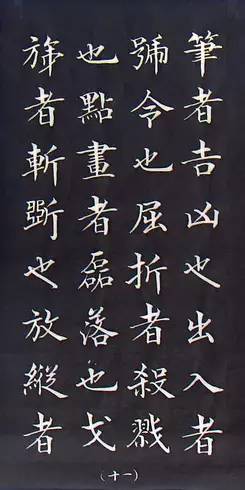 筆者吉凶也出入者
號令也屈折者殺戮
也點畫者磊落也戈
旆者斬斷也放縱者
（十一）